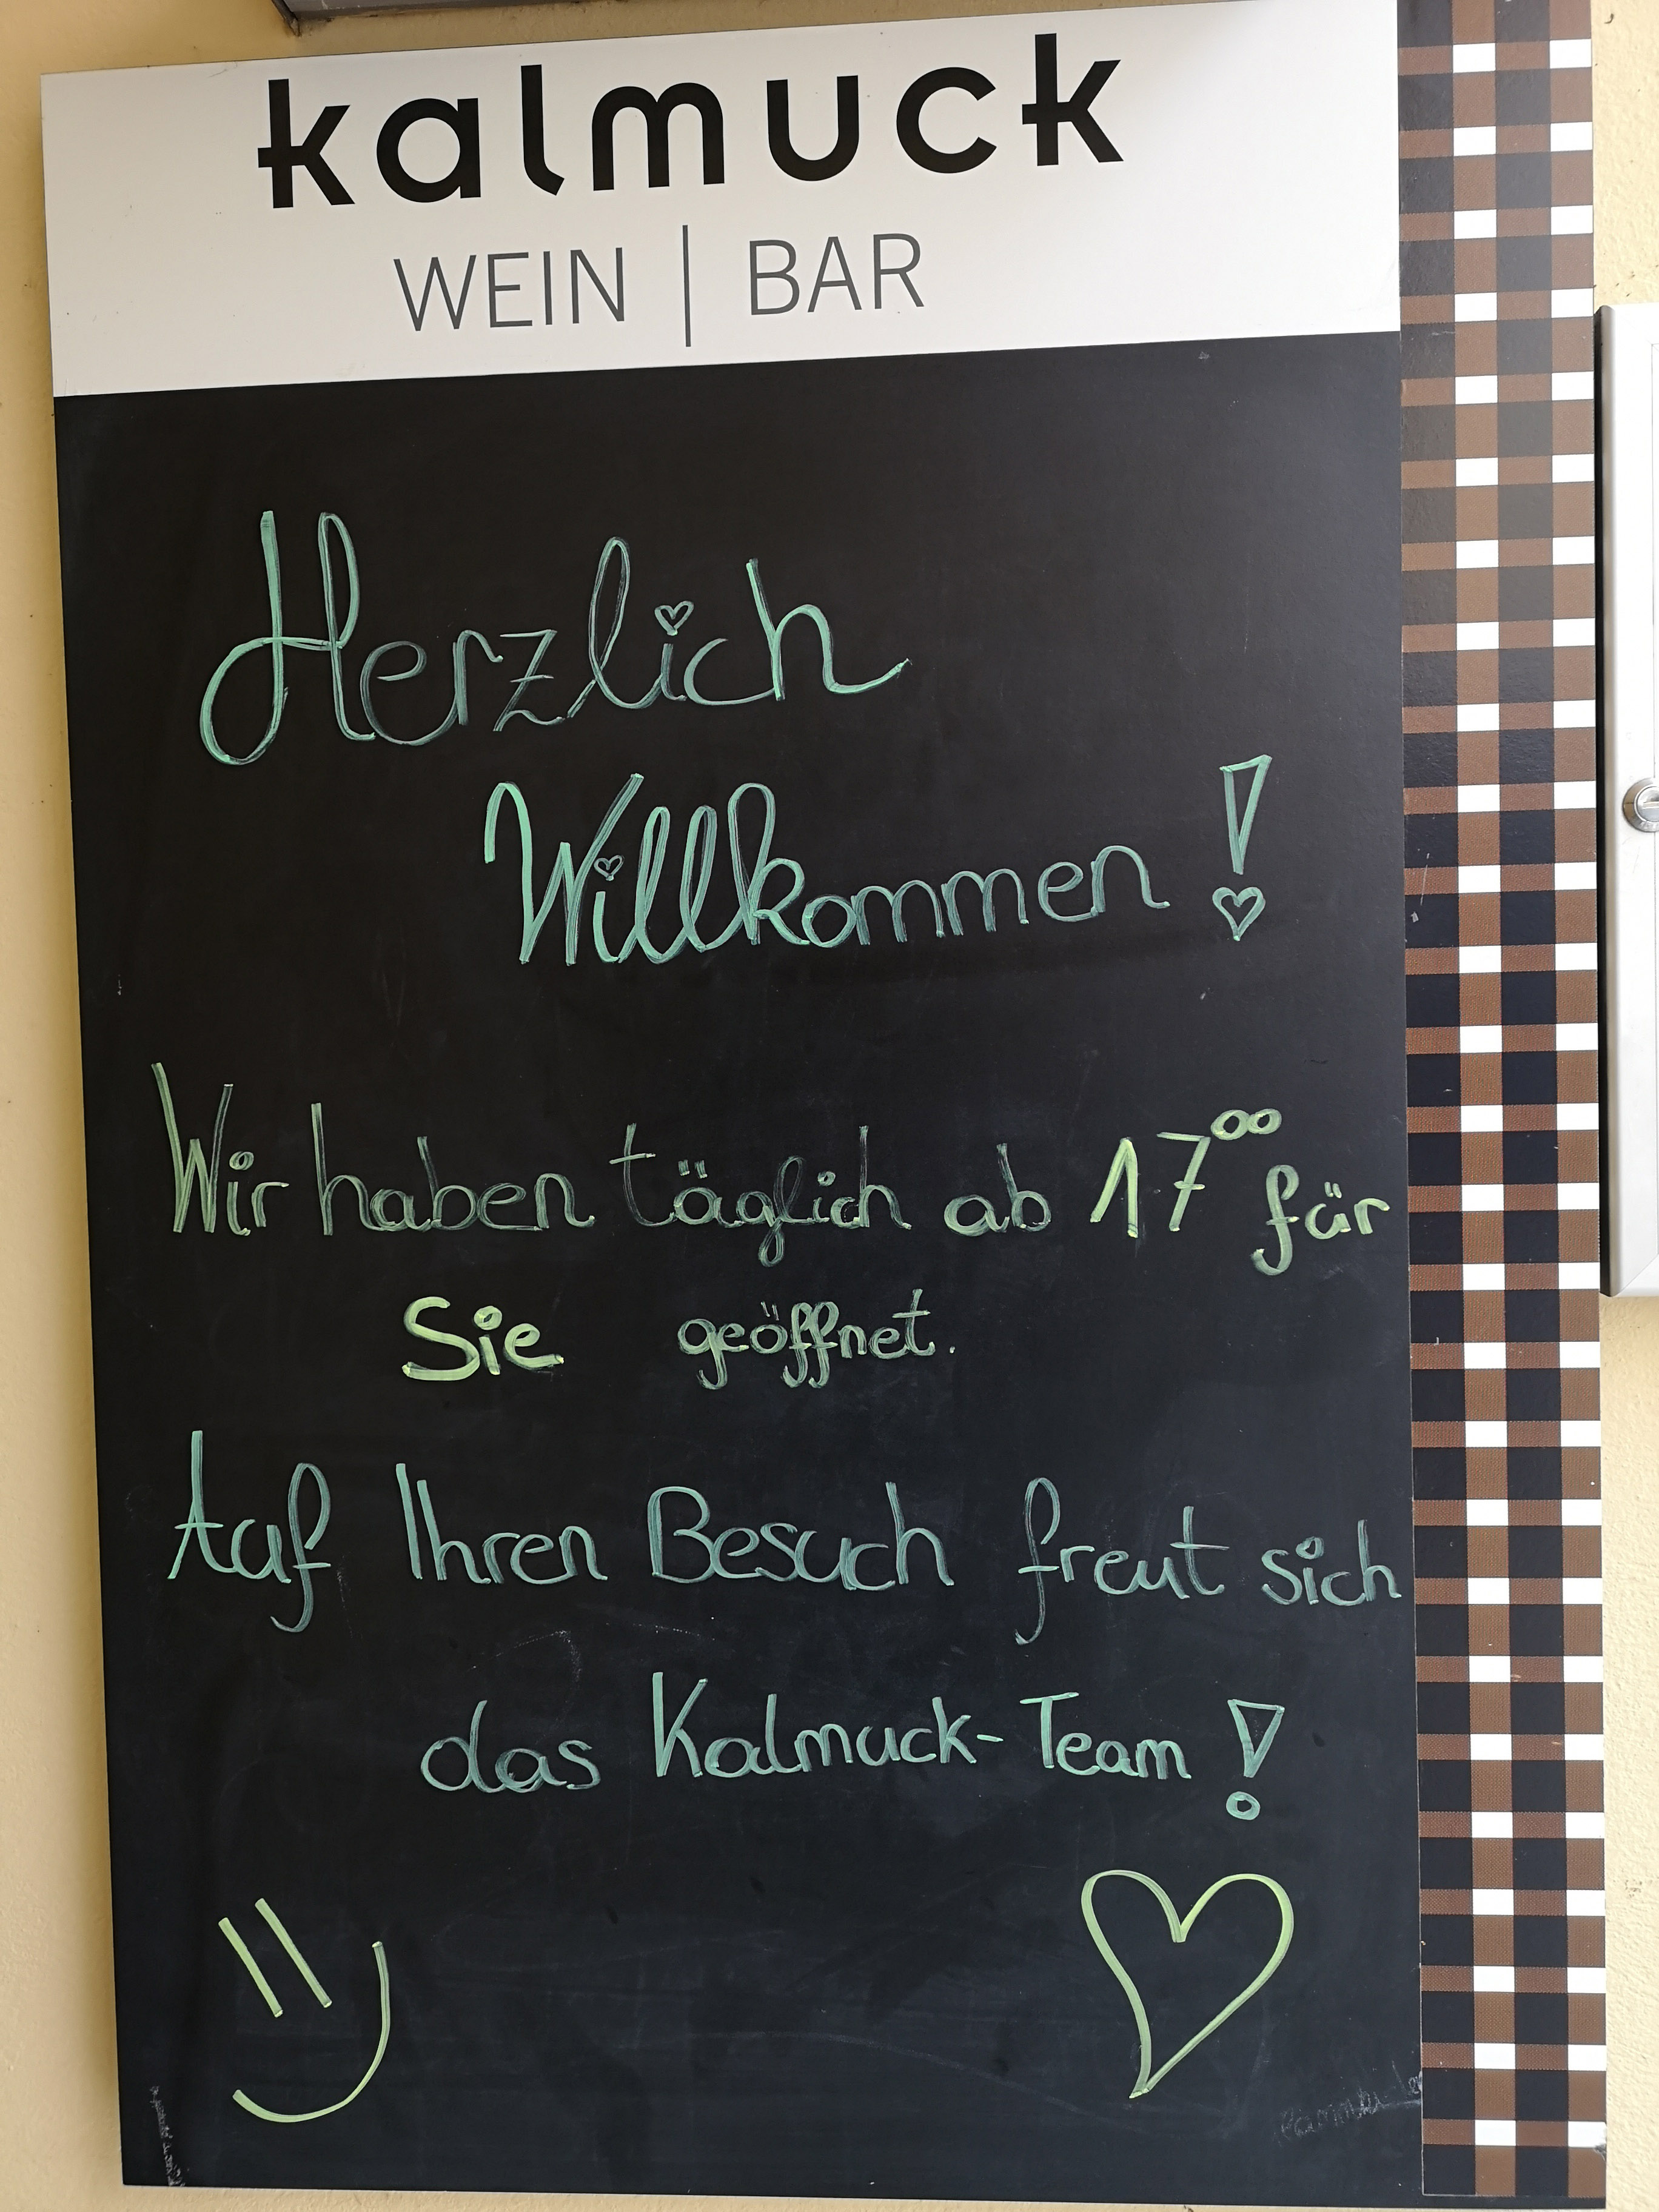 kalmuck
WEIN | BAR
Herzlich
Willkommen!
Wir haben täglich ab 17⁰⁰ für
Sie geöffnet.
Auf Ihren Besuch freut sich
das Kalmuck-Team!